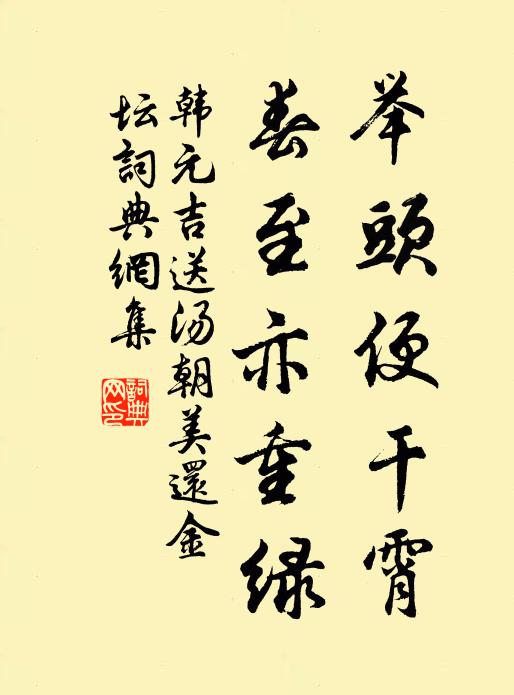 举頭便干霄
春至亦重绿
韩元吉送汤朝美還金
坛詞典網集
詞典網印